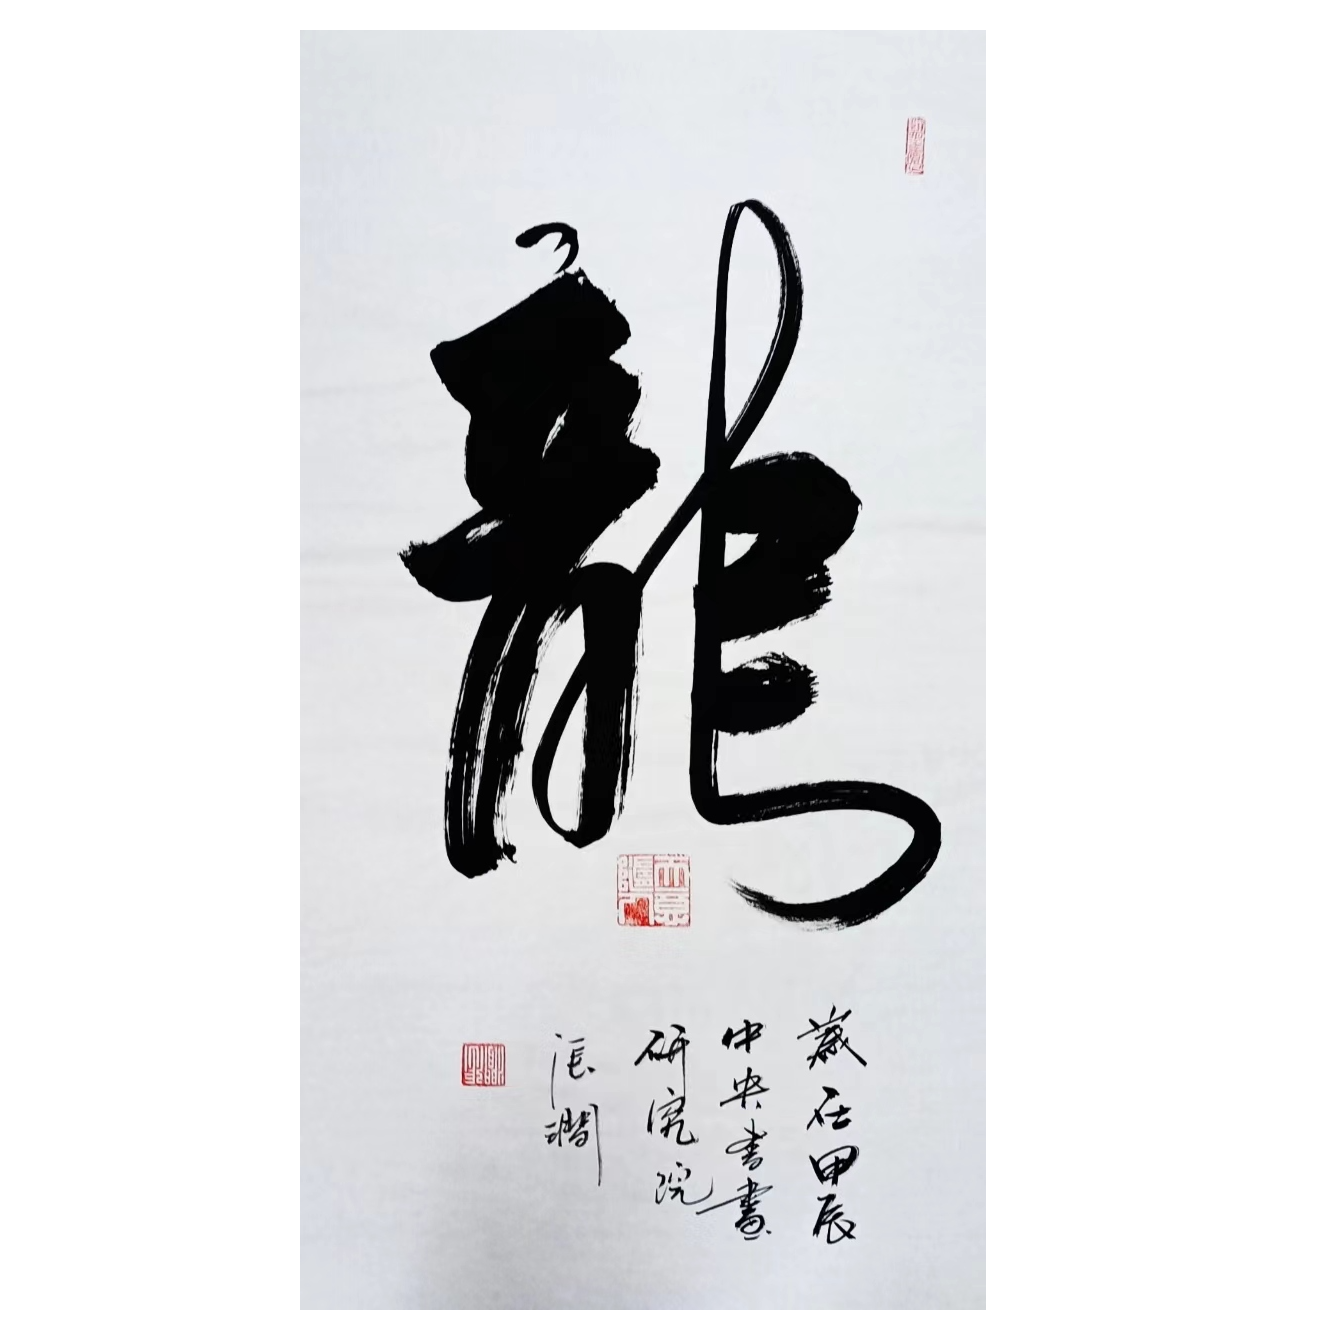 龍
歲在甲辰
中央書畫
研究院
張澗